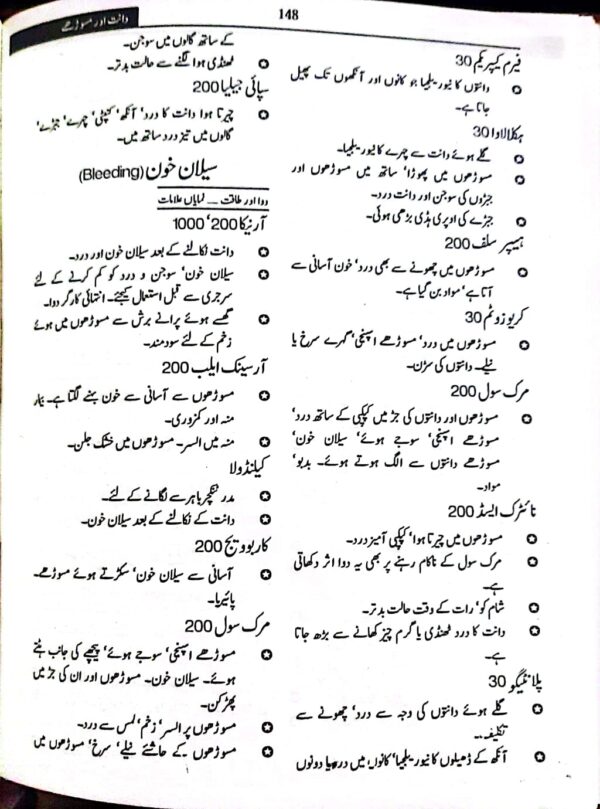 دانت اور مسوڑھے
148
فیرم کیپریکم 30
دانتوں کا نیوریلجیا جو کانوں اور آنکھوں تک پھیل
جاتا ہے۔
ہیکلالاوا 30
گلے ہوئے دانت سے چہرے کا نیوریلجیا۔
مسوڑھوں میں پھوڑا‘ ساتھ میں مسوڑھوں اور
جبڑوں کی سوجن اور دانت درد۔
جبڑے کی اوپری ہڈی بڑھی ہوئی۔
ہیپر سلف 200
مسوڑھوں میں چھونے سے بھی درد‘ خون آسانی سے
آتا ہے‘ مواد بن گیا ہے۔
کریوزوٹم 30
مسوڑھوں میں درد‘ مسوڑھے اسپنجی‘ گہرے سرخ یا
نیلے۔ دانتوں کی سڑن۔
مرک سول 200
مسوڑھوں اور دانتوں کی جڑ میں کپکپی کے ساتھ درد‘
مسوڑھے اسپنجی‘ سوجے ہوئے‘ سیلان خون‘
مسوڑھے دانتوں سے الگ ہوتے ہوئے۔ بدبو‘
مواد۔
نائٹرک ایسڈ 200
مسوڑھوں میں چیرتا ہوا‘ کپکپی آمیز درد۔
مرک سول کے ناکام رہنے پر بھی یہ دوا اثر دکھاتی
ہے۔
شام کو‘ رات کے وقت حالت بدتر۔
دانت کا درد ٹھنڈی یا گرم چیز کھانے سے بڑھ جاتا
ہے۔
پلانٹیگو 30
گلے ہوئے دانتوں کی وجہ سے درد‘ چھونے سے
تکلیف۔
آنکھ کے ڈھیلوں کا نیوریلجیا‘ کانوں میں درد یا دونوں
کے ساتھ گالوں میں سوجن۔
ٹھنڈی ہوا لگنے سے حالت بدتر۔
سپائی جیلیا 200
چیرتا ہوا دانت کا درد‘ آنکھ‘ کنپٹی‘ چہرے‘ جبڑے‘
گالوں میں تیز درد ساتھ میں۔
سیلان خون (Bleeding)
دوا اور طاقت ــ نمایاں علامات
آرنیکا 200‘ 1000
دانت نکالنے کے بعد سیلان خون اور درد۔
سیلان خون‘ سوجن و درد کو کم کرنے کے لئے
سرجری سے قبل استعمال کیجئے۔ انتہائی کارگر دوا۔
گھسے ہوئے پرانے برش سے مسوڑھوں میں ہوئے
زخم کے لئے سودمند۔
آرسینک ایلب 200
مسوڑھوں سے آسانی سے خون بہنے لگتا ہے۔ بیمار
منہ اور کمزوری۔
منہ میں السر۔ مسوڑھوں میں خشک جلن۔
کیلنڈولا
مدر ٹنکچر باہر سے لگانے کے لئے۔
دانت کے نکالنے کے بعد سیلان خون۔
کاربوویج 200
آسانی سے سیلان خون‘ سکڑتے ہوئے مسوڑھے۔
پائیریا۔
مرک سول 200
مسوڑھے اسپنجی‘ سوجے ہوئے‘ پیچھے کی جانب ہٹے
ہوئے۔ سیلان خون۔ مسوڑھوں اور ان کی جڑ میں
پھڑکن۔
مسوڑھوں پر السر‘ زخم‘ لمس سے درد۔
مسوڑھوں کے حاشئے نیلے‘ سرخ‘ مسوڑھوں میں